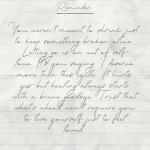 Reminder
You weren't meant to shrink just
to keep something broken alive.
Letting go is an act of self-
love. It's you saying, "I deserve
more than this fight." It hurts,
yes but healing always starts
with a brave goodbye. Trust that
what's ahead won't require you
to lose yourself just to feel
loved.